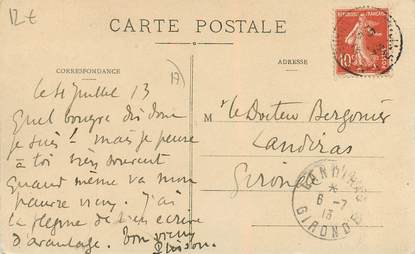 12 €
CARTE POSTALE
REPUBLIQUE FRANÇAISE
10c
POSTES
CORRESPONDANCE
ADRESSE
17
le 4 juillet 13
Quel bougre dis donc
je suis ! mais je pense
à toi bien souvent
quand même va mon
pauvre vieux. J'ai
la flegme de t'en écrire
d'avantage. Ton vieux
M r le Docteur Bergonier
Landiras
Gironde
LANDIRAS
6 - 7
13
GIRONDE